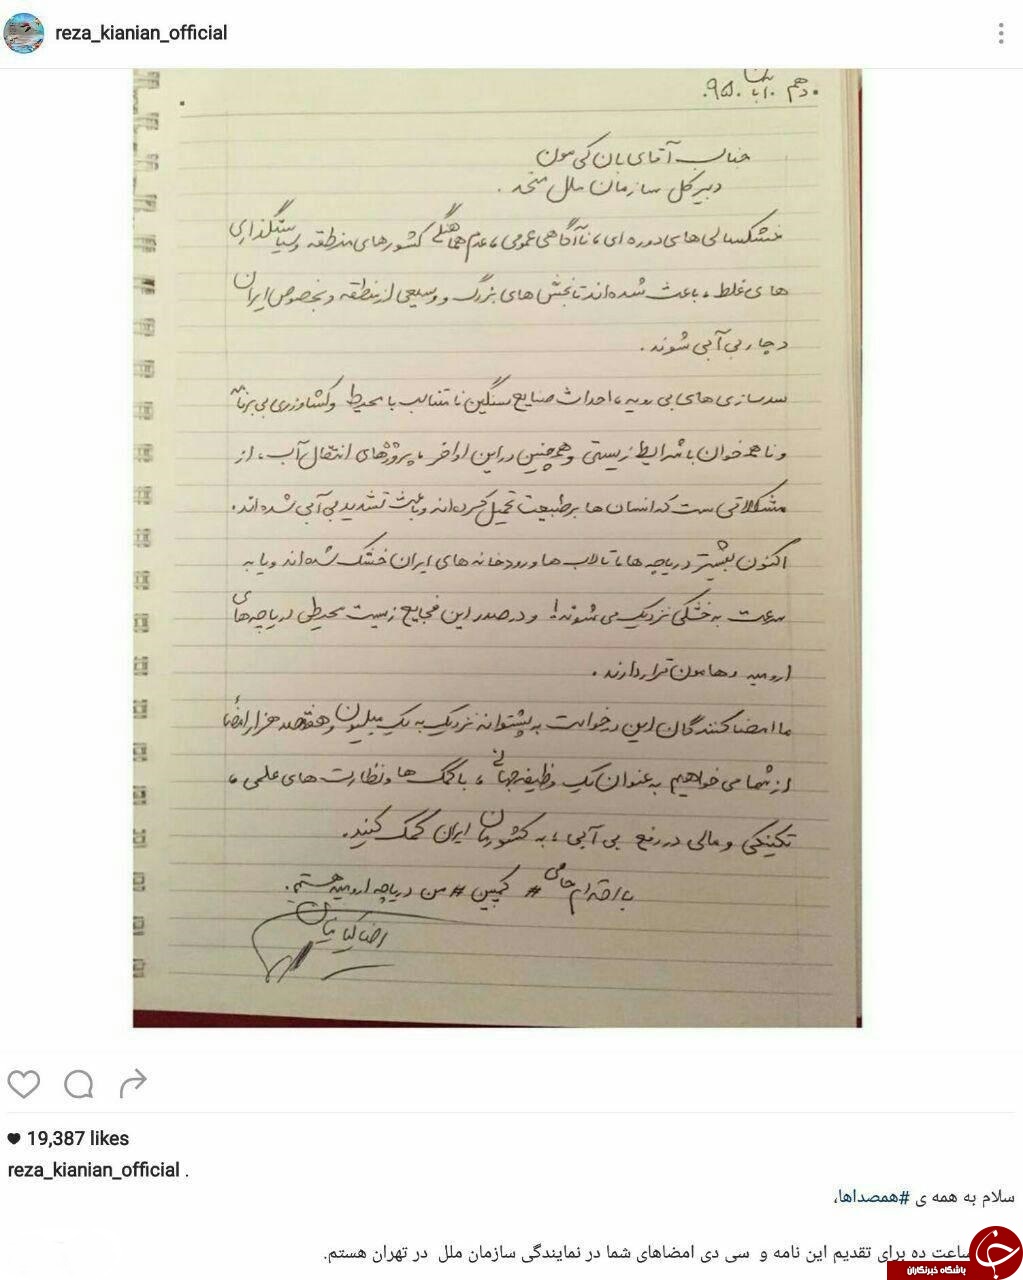 reza_kianian_official
دهم آبان ۹۵.
جناب آقای بان کی مون
دبیرکل سازمان ملل متحد.
خشکسالی های دوره ای، ناآگاهی عمومی، عدم هماهنگی کشورهای منطقه و سیاستگذاری
های غلط، باعث شده اند تا بخش های بزرگ و وسیعی از منطقه و بخصوص ایران
دچار بی آبی شوند.
سدسازی های بی رویه، احداث صنایع سنگین نامتناسب با محیط و کشاورزی بی برنامه
و ناهمخوان با شرایط زیستی و همچنین در این اواخر، پروژه های انتقال آب، از
مشکلاتی ست که انسان ها بر طبیعت تحمیل کرده اند و باعث تشدید بی آبی شده اند.
اکنون بیشتر دریاچه ها تالاب ها و رودخانه های ایران خشک شده اند و یا به
سرعت به خشکی نزدیک می شوند! و در صدر این فجایع زیست محیطی دریاچه های
ارومیه و هامون قرار دارند.
ما امضا کنندگان این درخواست به پشتوانه نزدیک به یک میلیون و هفتصد هزار امضاء
از شما می خواهیم به عنوان یک وظیفه جهانی، با کمک ها و نظارت های علمی،
تکنیکی و مالی در رفع بی آبی، به کشورمان ایران کمک کنید.
با احترام حامی # کمپین # من دریاچه ارومیه هستم.
رضا کیانیان
19,387 likes
reza_kianian_official .
سلام به همه ی #همصداها،
ساعت ده برای تقدیم این نامه و سی دی امضاهای شما در نمایندگی سازمان ملل در تهران هستم.
باشگاه خبرنگاران